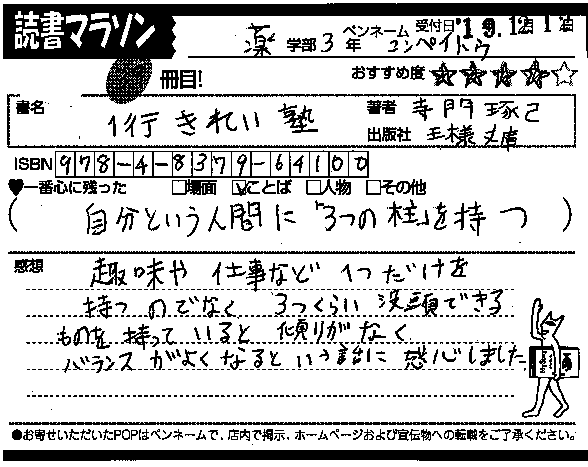 読書マラソン
薬 学部 3 年 ペンネーム コンペイトウ 受付日 '19.12月12日
冊目!
おすすめ度 ★★★★☆
書名 1行きれい塾 著者 寺門琢己
出版社 王様文庫
ISBN 978-4-8379-64100
♥一番心に残った □場面 ☑ことば □人物 □その他
(自分という人間に「3つの柱」を持つ)
感想 趣味や仕事など 1つだけを
持つのでなく 3つくらい没頭できる
ものを持っていると偏りがなく
バランスがよくなるという話に感心しました
●お寄せいただいたPOPはペンネームで、店内で掲示、ホームページおよび宣伝物への転載をご了承ください。